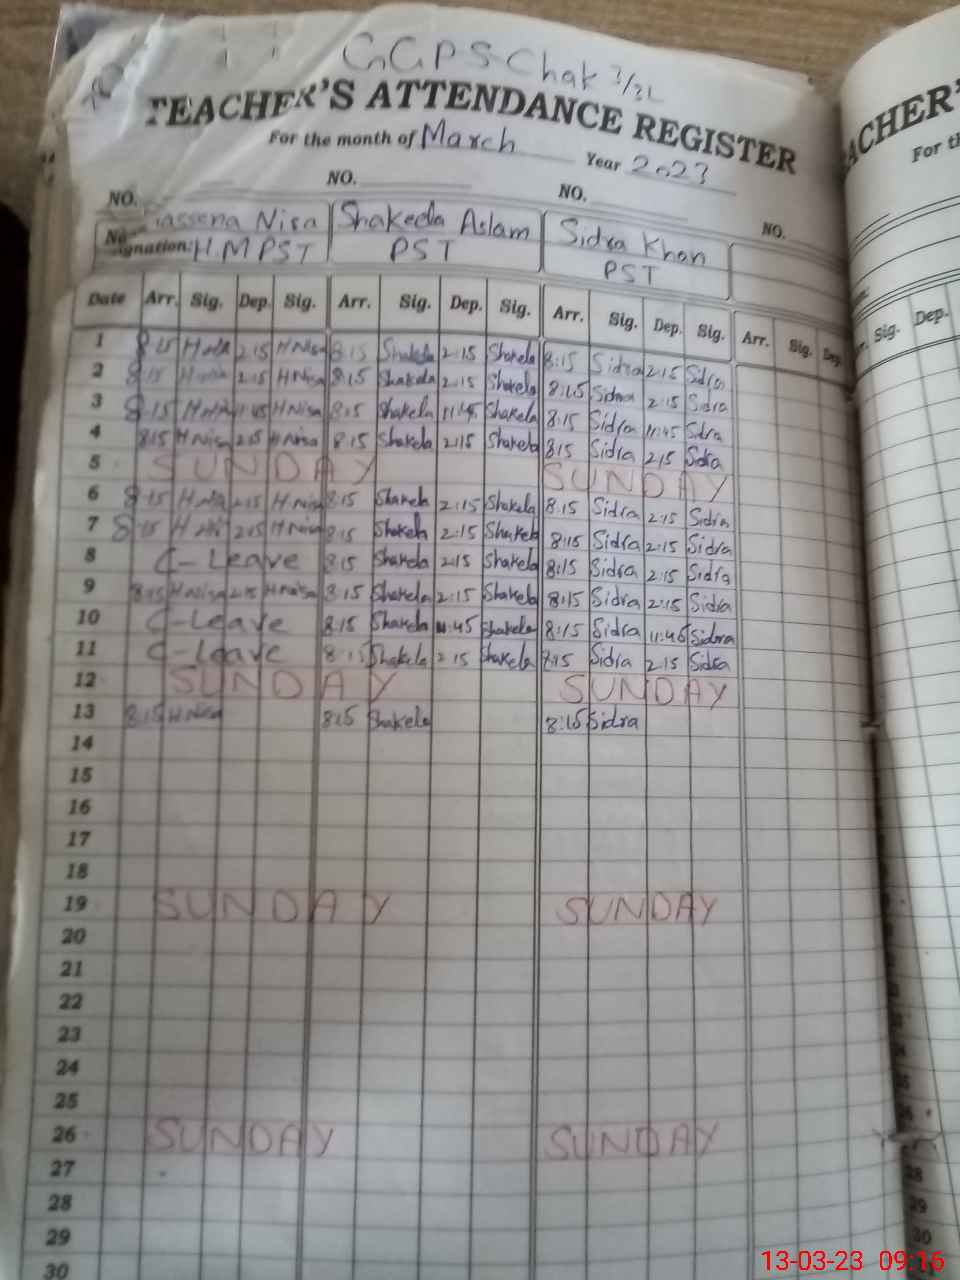 GGPS Chak 3/3L
TEACHER'S ATTENDANCE REGISTER
For the month of March Year 2023
NO. NO. NO. NO.
Nisa Shakeela Aslam Sidra Khan
signation: HM PST PST PST
Date Arr. Sig. Dep. Sig. Arr. Sig. Dep. Sig. Arr. Sig. Dep. Sig. Arr. Sig. Dep.
1 8:15 2:15 H Nisa 8:15 Shakela 2:15 Shakela 8:15 Sidra 2:15 Sidra
2 8:15 2:15 H Nisa 8:15 Shakela 2:15 Shakela 8:15 Sidra 2:15 Sidra
3 8:15 11:45 H Nisa 8:15 Shakela 11:45 Shakela 8:15 Sidra 11:45 Sidra
4 8:15 H Nisa 2:15 H Nisa 8:15 Shakela 2:15 Shakela 8:15 Sidra 2:15 Sidra
5 SUNDAY SUNDAY
6 8:15 2:15 H Nisa 8:15 Shakela 2:15 Shakela 8:15 Sidra 2:15 Sidra
7 8:15 2:15 H Nisa 8:15 Shakela 2:15 Shakela 8:15 Sidra 2:15 Sidra
8 C-Leave 8:15 Shakela 2:15 Shakela 8:15 Sidra 2:15 Sidra
9 8:15 H Nisa 2:15 H Nisa 8:15 Shakela 2:15 Shakela 8:15 Sidra 2:15 Sidra
10 C-Leave 8:15 Shakela 11:45 Shakela 8:15 Sidra 11:45 Sidra
11 C-Leave 8:15 Shakela 2:15 Shakela 8:15 Sidra 2:15 Sidra
12 SUNDAY SUNDAY
13 8:15 H Nisa 8:15 Shakela 8:15 Sidra
14
15
16
17
18
19 SUNDAY SUNDAY
20
21
22
23
24
25
26 SUNDAY SUNDAY
27
28
29
30
ACHER'
For th
Sig. Dep.
28
29
30
13-03-23 09:16